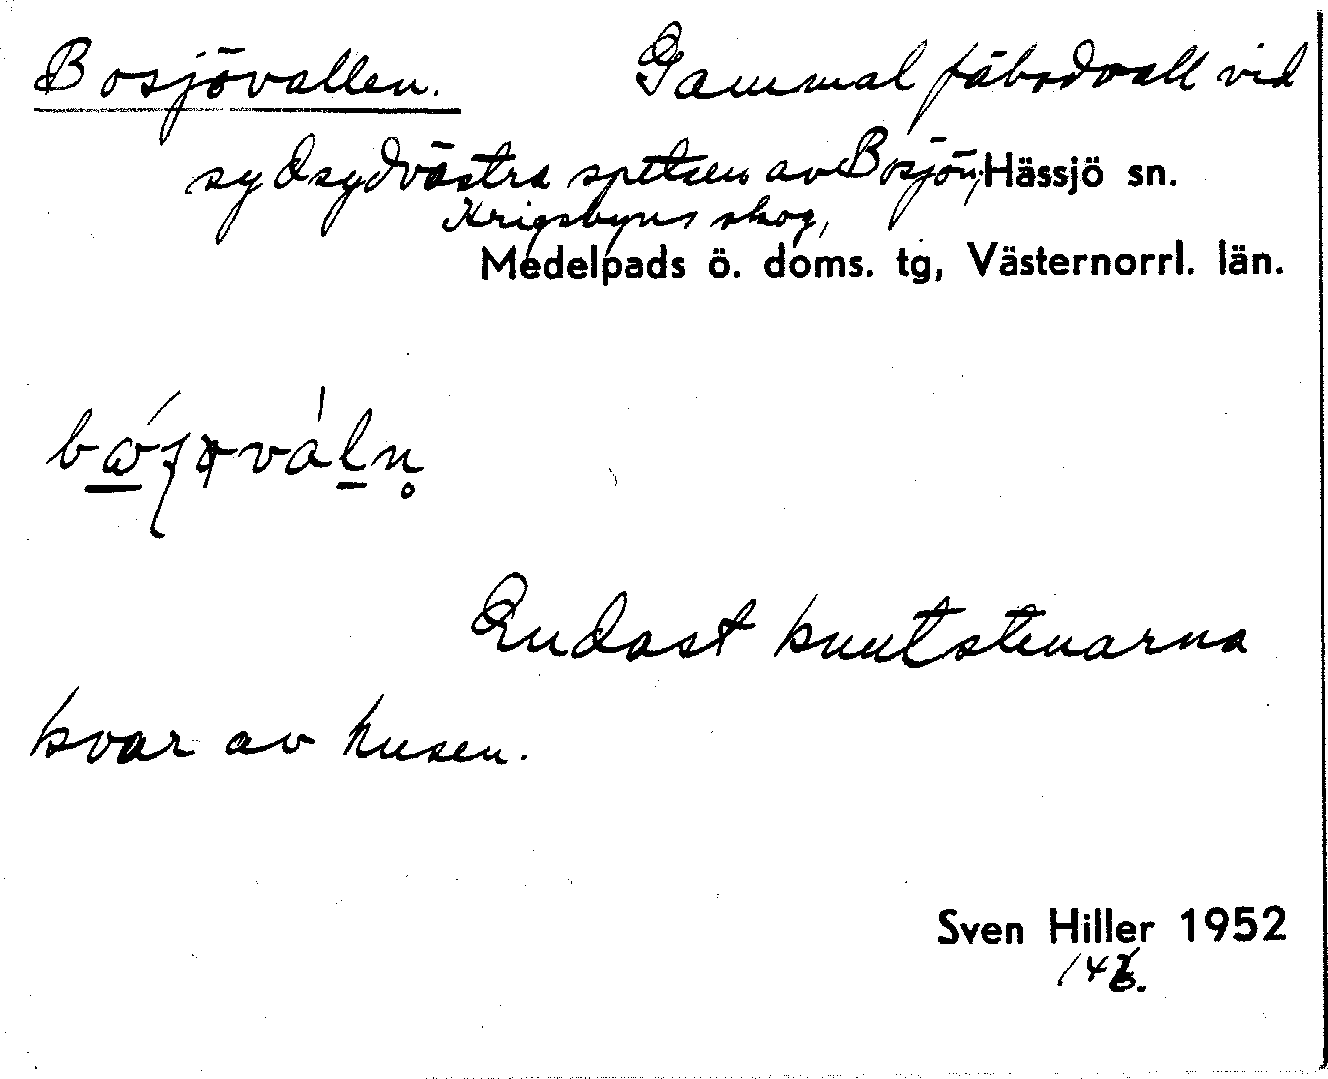 Bosjövallen. Gammal fäbodvall vid
sydsydvästra spetsen av Bosjön, Hässjö sn.
Krigsbyns skog,
Medelpads ö. doms. tg, Västernorrl. län.
Endast knutstenarna
kvar av husen.
Sven Hiller 1952